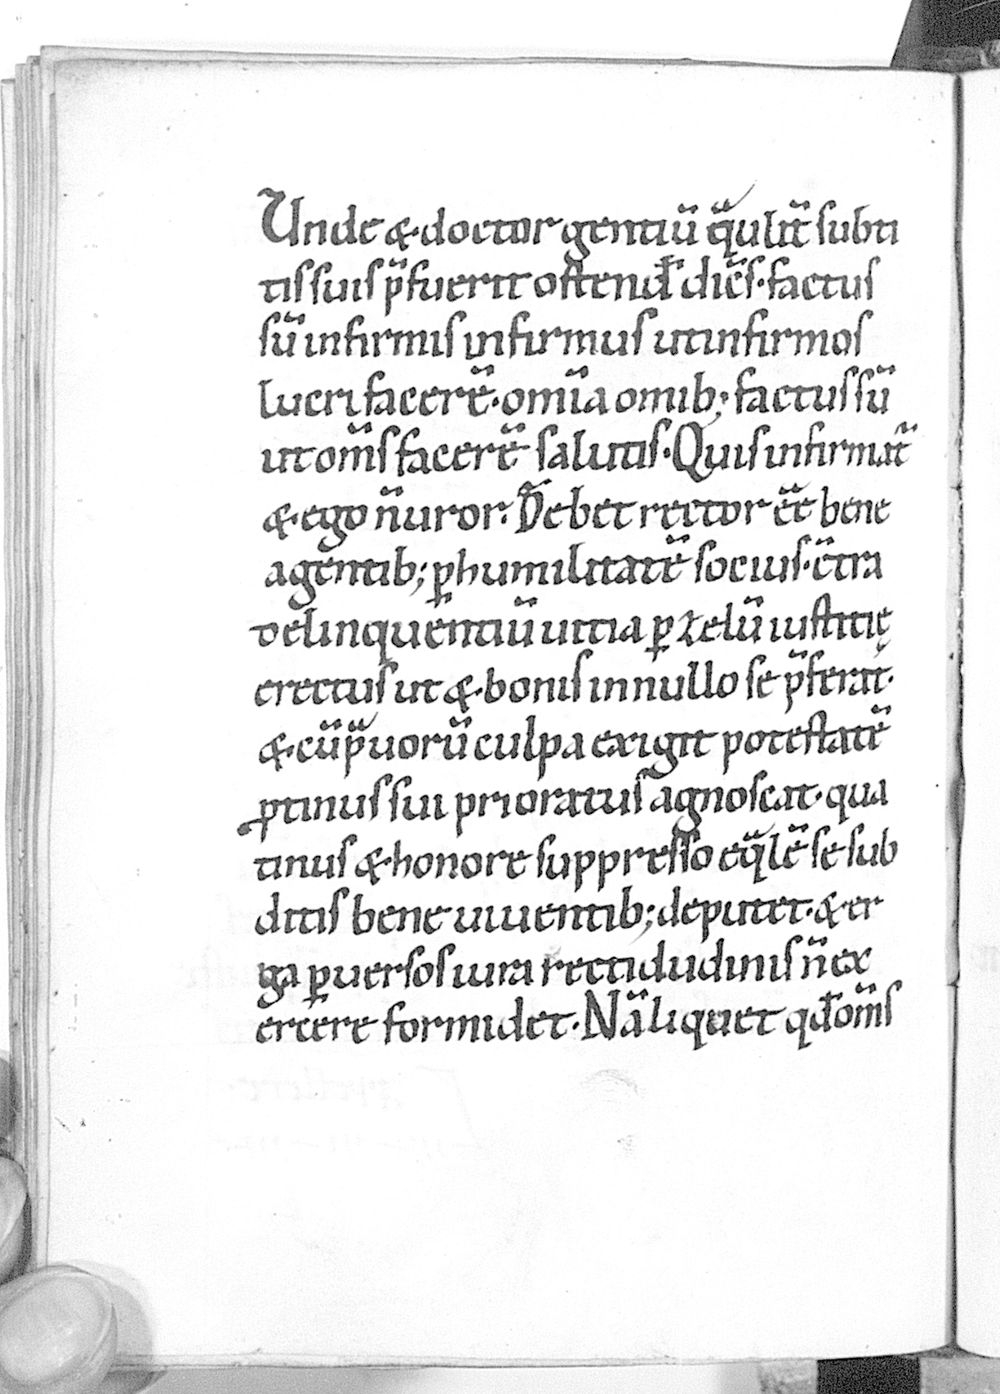 Unde &·doctor gentiū q̄ulit̄ subti
tis suis p̄fuerit ostend̄ dic̄s·factus
sū infirmis infirmus ut infirmos
lucri facerē·omīa omib;·factus sū
ut om̄s facerē salutis·Quis infirmat̄
&·ego n̄ uror. Debet rector ēē bene
agentib; ꝑ humilitatē socius·c̄tra
delinquentiū uitia ꝑ zelū iustitię
erectus ut &·bonis in nullo se p̄ferat·
&·cū p̄uorū culpa exigit potestatē
ꝓtinus sui prioratus agnoscat·qua
tinus &·honore suppresso eq̄lē se sub
ditis bene uiuentib; deputet·&·er
ga ꝑuersos iura rectidudinis n̄ ex
ercere formidet·Nā liquet qđ om̄s